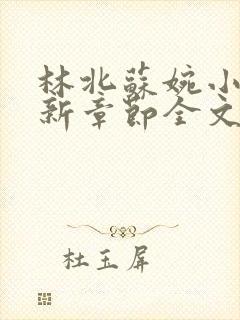 林北蘇婉小
新章節全文
杜玉屏